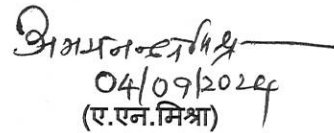 अभयनन्द मिश्र
04/09/2024
(ए.एन.मिश्रा)